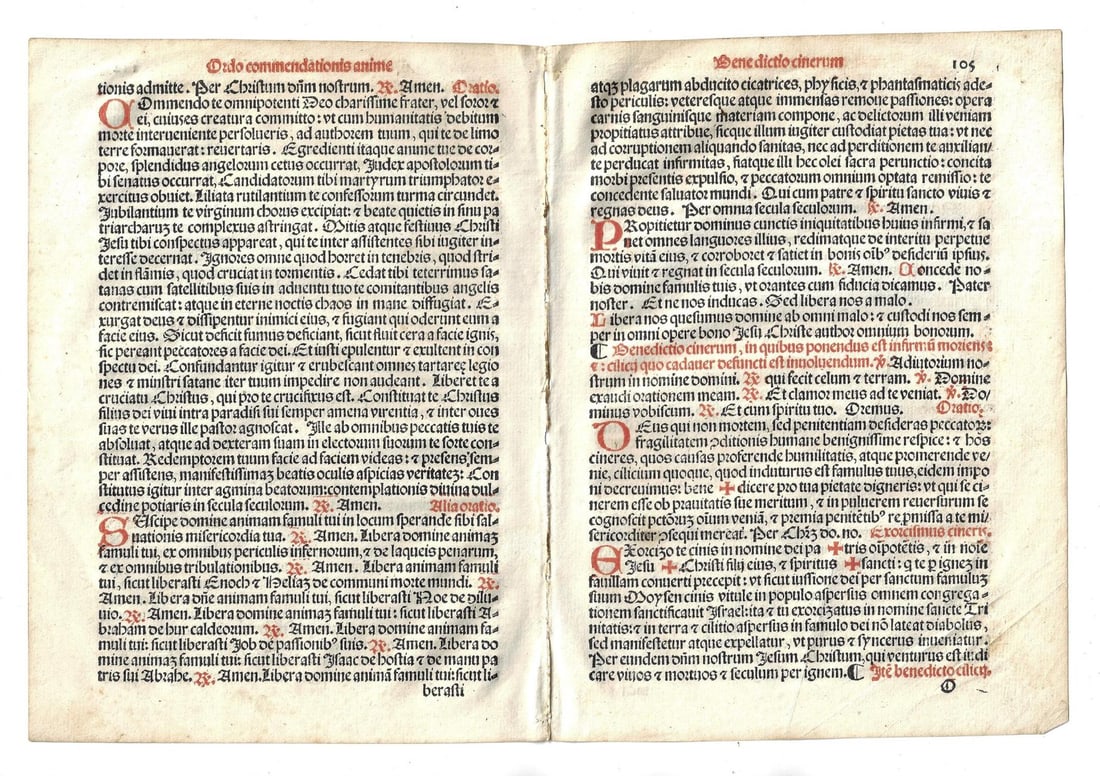 Ordo commendationis anime
tionis admitte. Per Christum dñm nostrum. ℟. Amen. Oratio.
COmmendo te omnipotenti Deo charissime frater, vel soror ⁊
ei, cuiuses creatura committo: vt cum humanitatis debitum
morte interueniente persolueris, ad authorem tuum, qui te de limo
terre formauerat: reuertaris. Egredienti itaque anime tue de cor-
pore, splendidus angelorum cetus occurrat, Judex apostolorum ti-
bi senatus occurrat, Candidatorum tibi martyrum triumphator e-
xercitus obuiet. Liliata rutilantium te confessorum turma circundet.
Jubilantium te virginum chorus excipiat: ⁊ beate quietis in sinu pa
triarcharuꝫ te complexus astringat. Mitis atque festiuus Christi
Jesu tibi conspectus appareat, qui te inter assistentes sibi iugiter in-
teresse decernat. Ignores omne quod horret in tenebris, quod stri-
det in flãmis, quod cruciat in tormentis. Cedat tibi teterrimus sa-
tanas cum satellitibus suis in aduentu tuo te comitantibus angelis
contremiscat: atque in eterne noctis chaos in mane diffugiat. E-
xurgat deus ⁊ dissipentur inimici eius, ⁊ fugiant qui oderunt eum a
facie eius. Sicut deficit fumus deficiant, sicut fluit cera a facie ignis,
sic pereant peccatores a facie dei. Et iusti epulentur ⁊ exultent in con
spectu dei. Confundantur igitur ⁊ erubescant omnes tartareę legio
nes ⁊ ministri satane iter tuum impedire non audeant. Liberet te a
cruciatu Christus, qui pro te crucifixus est. Constituat te Christus
filius dei viui intra paradisi sui semper amena virentia, ⁊ inter oues
suas te verus ille pastor agnoscat. Ille ab omnibus peccatis tuis te
absoluat, atque ad dexteram suam in electorum suorum te sorte con-
stituat. Redemptorem tuum facie ad faciem videas: ⁊ presens sem-
per assistens, manifestissimaꝫ beatis oculis aspicias veritateꝫ: Con
stitutus igitur inter agmina beatorum: contemplationis diuina dul-
cedine potiaris in secula seculorum. ℟. Amen. Alia oratio.
SUscipe domine animam famuli tui in locum sperande sibi sal-
uationis misericordia tua. ℟. Amen. Libera domine animaꝫ
famuli tui, ex omnibus periculis infernorum, ⁊ de laqueis penarum,
⁊ ex omnibus tribulationibus. ℟. Amen. Libera animam famuli
tui, sicut liberasti Enoch ⁊ Heliaꝫ de communi morte mundi. ℟.
Amen. Libera dñe animam famuli tui, sicut liberasti Noe de dilu-
uio. ℟. Amen. Libera domine animaꝫ famuli tui: sicut liberasti A-
braham de hur caldeorum. ℟. Amen. Libera domine animam fa-
muli tui: sicut liberasti Job de passionibꝰ suis. ℟. Amen. Libera do
mine animaꝫ famuli tui: sicut liberasti Isaac de hostia ⁊ de manu pa
tris sui Abrahe. ℟. Amen. Libera domine animã famuli tui: sicut li-
berasti
Bene dictio cinerum 105
atqꝫ plagarum abducito cicatrices, phy sicis, ⁊ phantasmaticis ade-
sto periculis: veteresque atque immensas remoue passiones: opera
carnis sanguinisque materiam compone, ac delictorum illi veniam
propitiatus attribue, sicque illum iugiter custodiat pietas tua: vt nec
ad corruptionem aliquando sanitas, nec ad perditionem te auxilian/
te perducat infirmitas, fiatque illi hec olei sacra perunctio: concita
morbi presentis expulsio, ⁊ peccatorum omnium optata remissio: te
concedente saluator mundi. Qui cum patre ⁊ spiritu sancto viuis ⁊
regnas deus. Per omnia secula seculorum. ℟. Amen.
PRopitietur dominus cunctis iniquitatibus huius infirmi, ⁊ sa
net omnes languores illius, redimatque de interitu perpetue
mortis vitã eius, ⁊ corroboret ⁊ satiet in bonis oĩbꝰ desideriũ ipsius.
Qui viuit ⁊ regnat in secula seculorum. ℟. Amen. Concede no-
bis domine famulis tuis, vt orantes cum fiducia dicamus. Pater
noster. Et ne nos inducas. Sed libera nos a malo.
Libera nos quesumus domine ab omni malo: ⁊ custodi nos sem-
per in omni opere bono Jesu Christe author omnium bonorum.
¶ Benedictio cinerum, in quibus ponendus est infirmũ moriens:
⁊: cilicij quo cadauer defuncti est inuoluendum. ℣. Adiutorium no-
strum in nomine domini. ℟. qui fecit celum ⁊ terram. ℣. Domine
exaudi orationem meam. ℟. Et clamor meus ad te veniat. ℣. Do/
minus vobiscum. ℟. Et cum spiritu tuo. Oremus. Oratio.
DEus qui non mortem, sed penitentiam desideras peccatorꝫ:
fragilitatem ꝯditionis humane benignissime respice: ⁊ hos
cineres, quos causas proferende humilitatis, atque promerende ve/
nie, cilicium quoque, quod induturus est famulus tuus, eidem impo
ni decreuimus: bene ✠ dicere pro tua pietate digneris: vt qui se ci-
nerem esse ob prauitatis sue meritum, ⁊ in puluerem reuersurum se
cognoscit pctõrũꝫ oĩum veniã, ⁊ premia penitẽtibꝰ repmissa a te mi/
sericorditer ꝯsequi mereat̃. Per Chrꝫ do. no. Exorcismus cineris.
EXorcizo te cinis in nomine dei pa ✠ tris oĩpotẽtis, ⁊ in noĩe
Jesu ✠ Christi filij eius, ⁊ spiritus ✠ sancti: q te ꝑ igneꝫ in
fauillam conuerti precepit: vt sicut iussione dei per sanctum famuluꝫ
suum Moysen cinis vitule in populo aspersus omnem congrega-
tionem sanctificauit Israel: ita ⁊ tu exorcizatus in nomine sancte Tri
nitatis: ⁊ in terra ⁊ cilitio aspersus in famulo dei nõ lateat diabolus,
sed manifestetur atque expellatur, vt purus ⁊ syncerus inueniatur.
Per eundem dñm nostrum Jesum Christum, qui venturus est iudi
care viuos ⁊ mortuos ⁊ seculum per ignem. ¶ Itẽ benedictio cilicij.
O